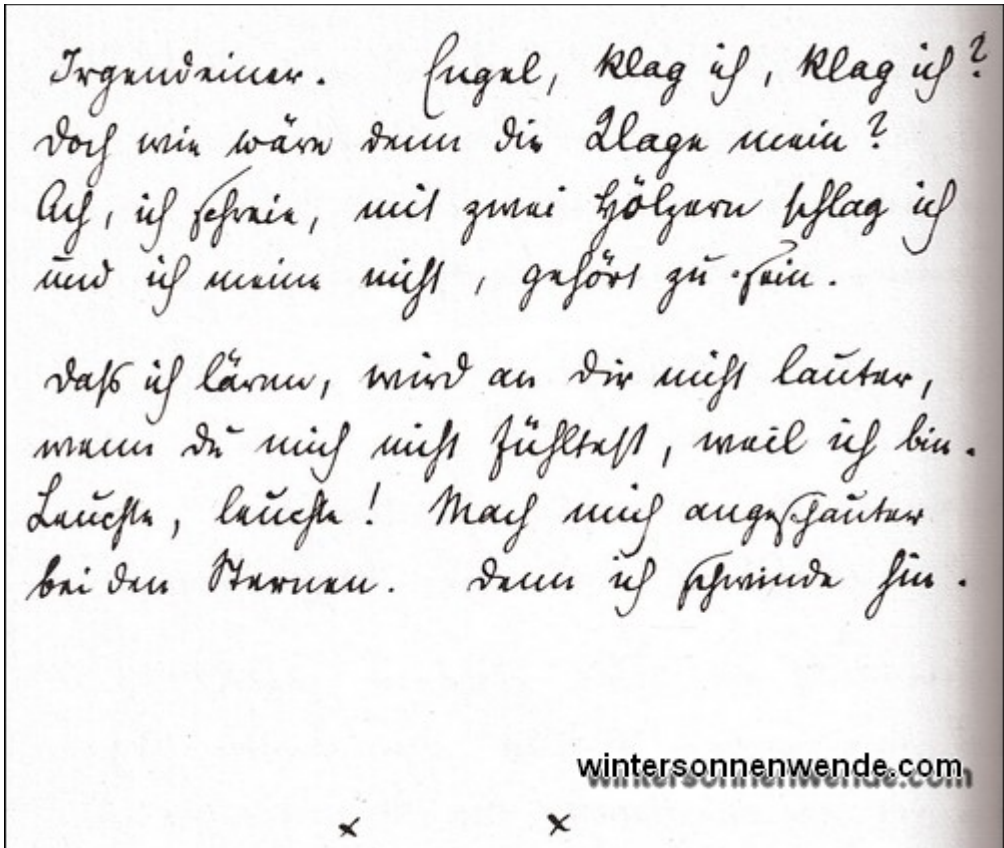 Irgendeiner. Engel, klag ich, klag ich?
Doch wie wäre denn die Klage mein?
Ach, ich schreie, mit zwei Hölzern schlag ich
und ich meine nicht, gehört zu sein.
Dass ich lärme, wird an Dir nicht lauter,
wenn du mich nicht fühltest, weil ich bin.
Leuchte, leuchte! Mach mich angeschauter
bei den Sternen. Denn ich schwinde hin.
wintersonnenwende.com
x x